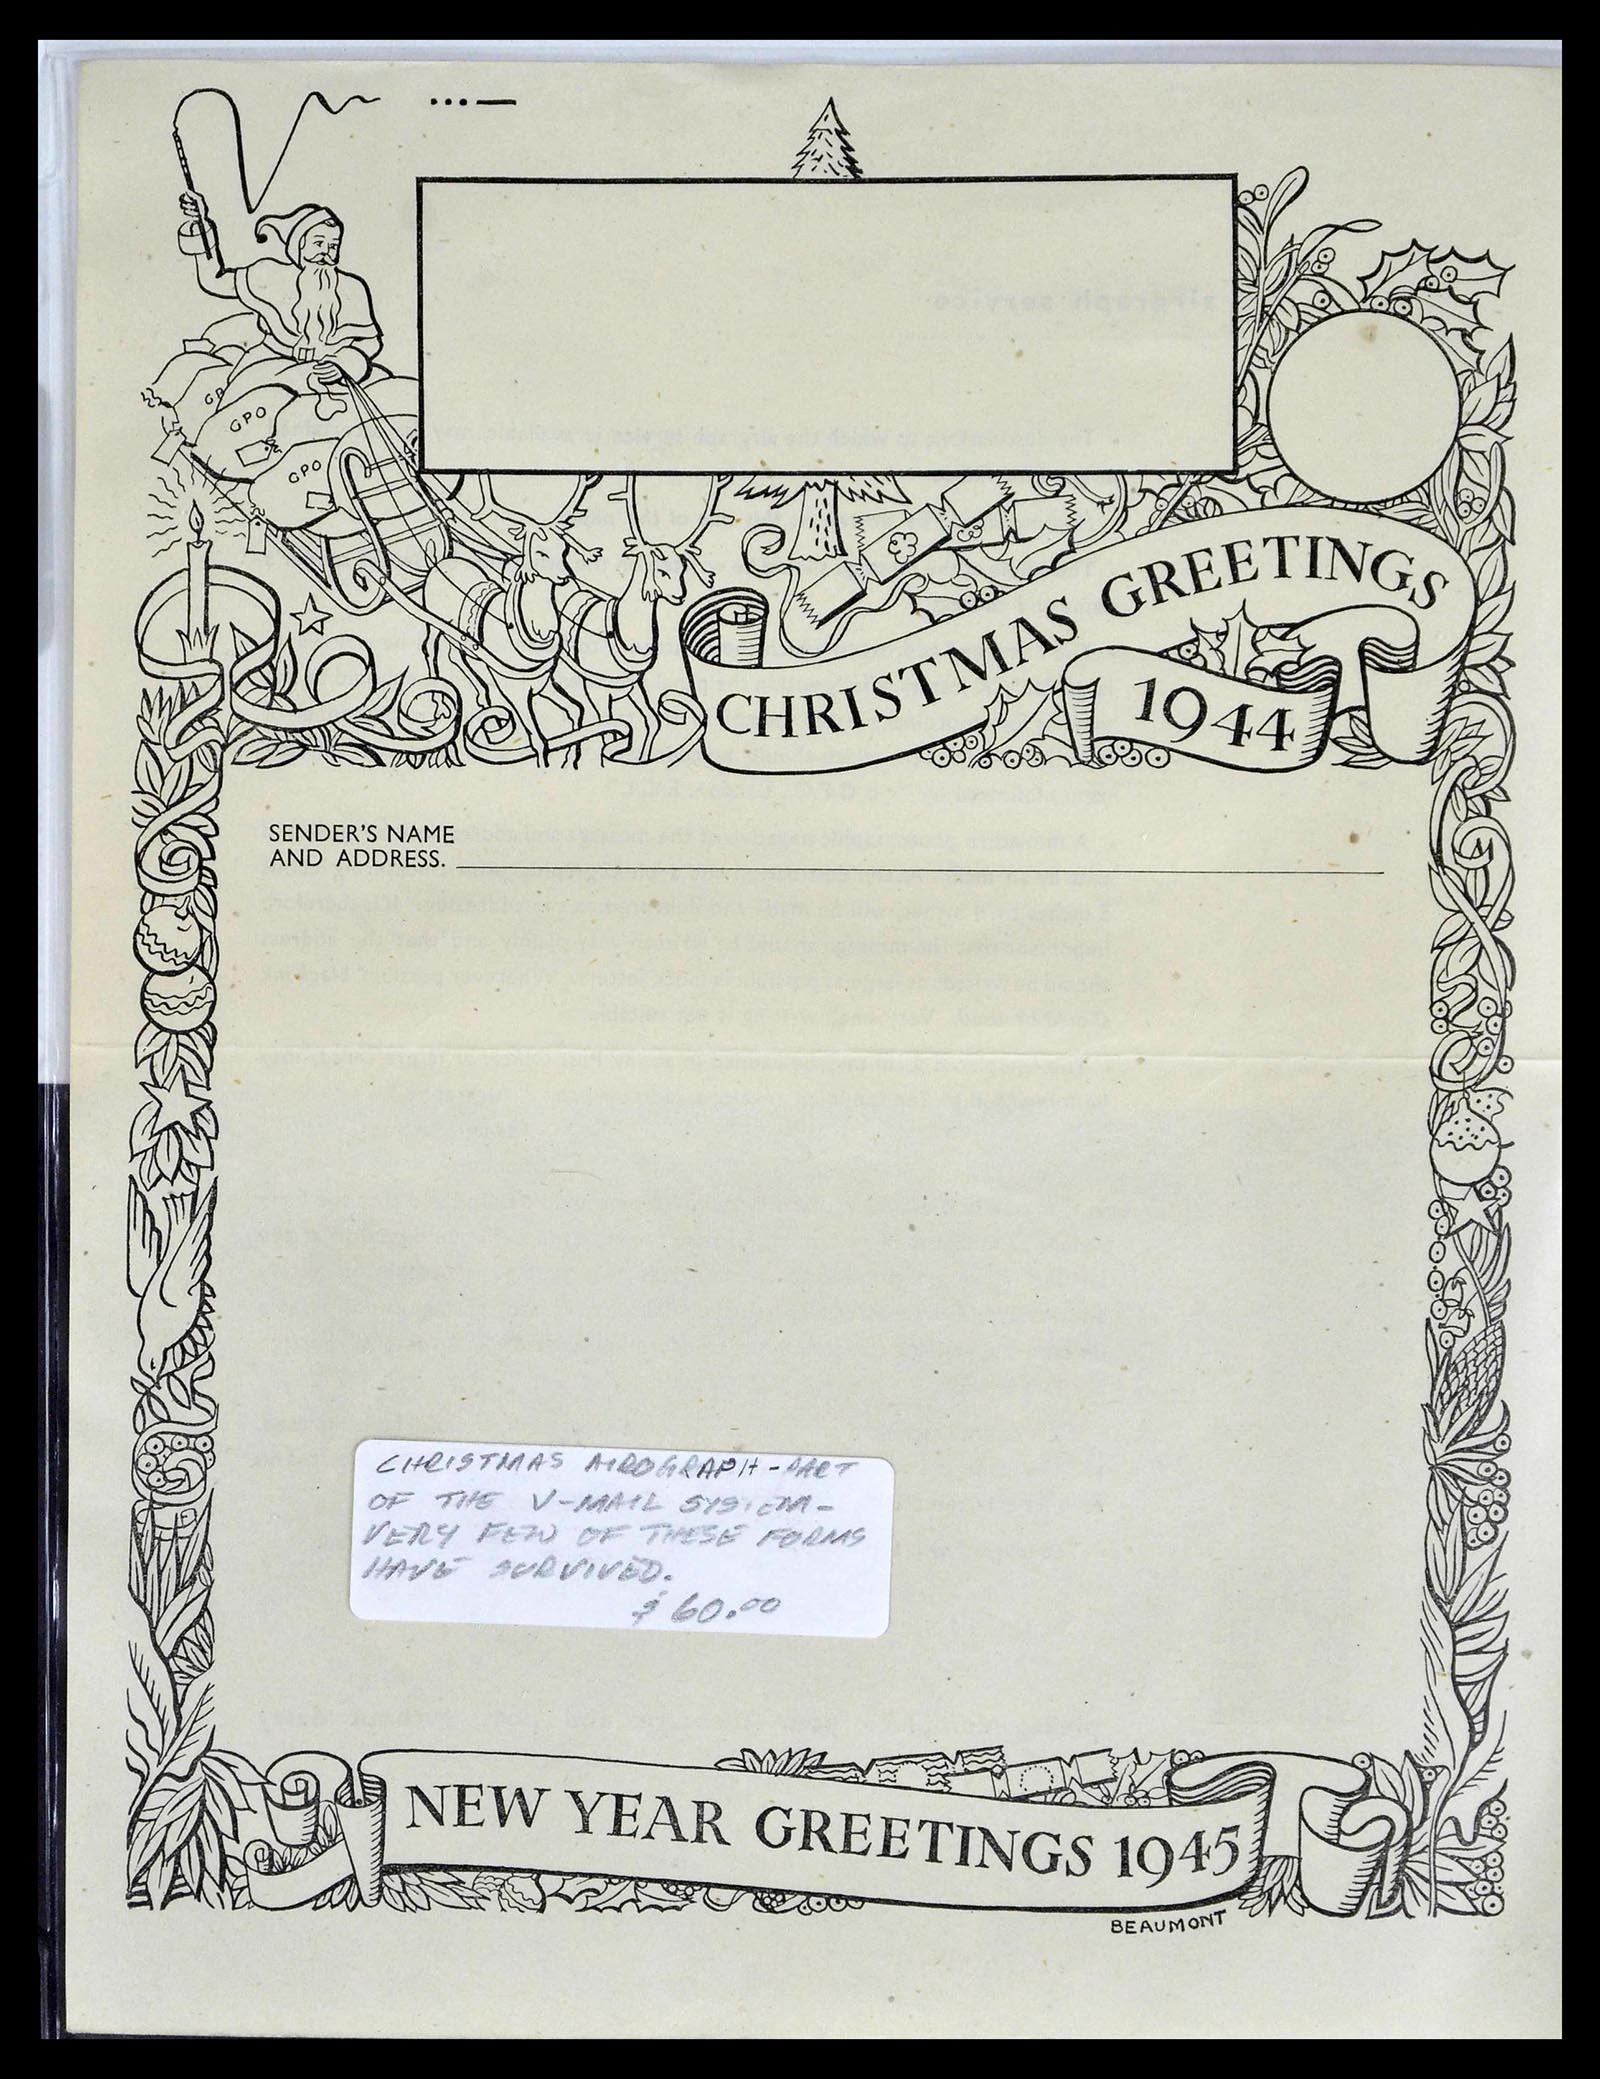 ...—
GPO
GPO
GPO
CHRISTMAS GREETINGS
1944
SENDER'S NAME
AND ADDRESS.
CHRISTMAS AIROGRAPH - PART
OF THE V-MAIL SYSTEM -
VERY FEW OF THESE FORMS
HAVE SURVIVED.
$60.00
NEW YEAR GREETINGS 1945
BEAUMONT